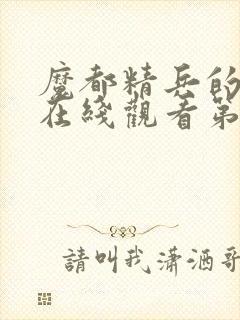 魔都精兵的
在綫觀看第
請叫我瀟洒哥